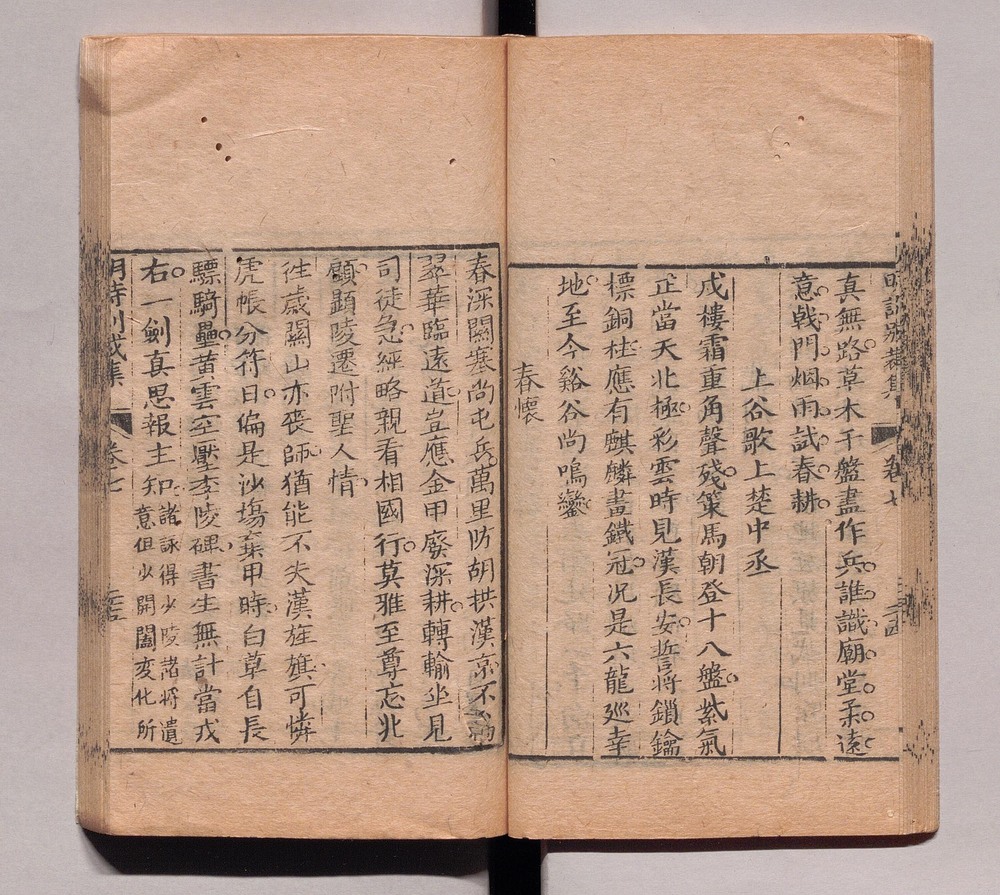 明詩別裁集
卷七
真無路草木千盤盡作兵誰識廟堂柔遠
意戟門烟雨試春耕
上谷歌上楚中丞
戍樓霜重角聲殘策馬朝登十八盤紫氣
正當天北極彩雲時見漢長安誓將鎖鑰
標銅柱應有麒麟畫鐵冠况是六龍廵幸
地至今谿谷尚鳴鑾
春懷
春深關塞尚屯兵萬里防胡拱漢京不
翠華臨遠道豈應金甲廢深耕轉輸坐見
司徒急經略親看相國行莫雅至尊忘北
顧顯陵遷附聖人情
徃歲關山亦喪師猶能不失漢旌旗可憐
虎帳分符日偏是沙塲棄甲時白草自長
驃騎壘黃雲空壓李陵碑書生無計當戎
右一劍真思報主知
諸詠得少陵諸將遺
意但少開闔变化所
明詩別裁集
卷七